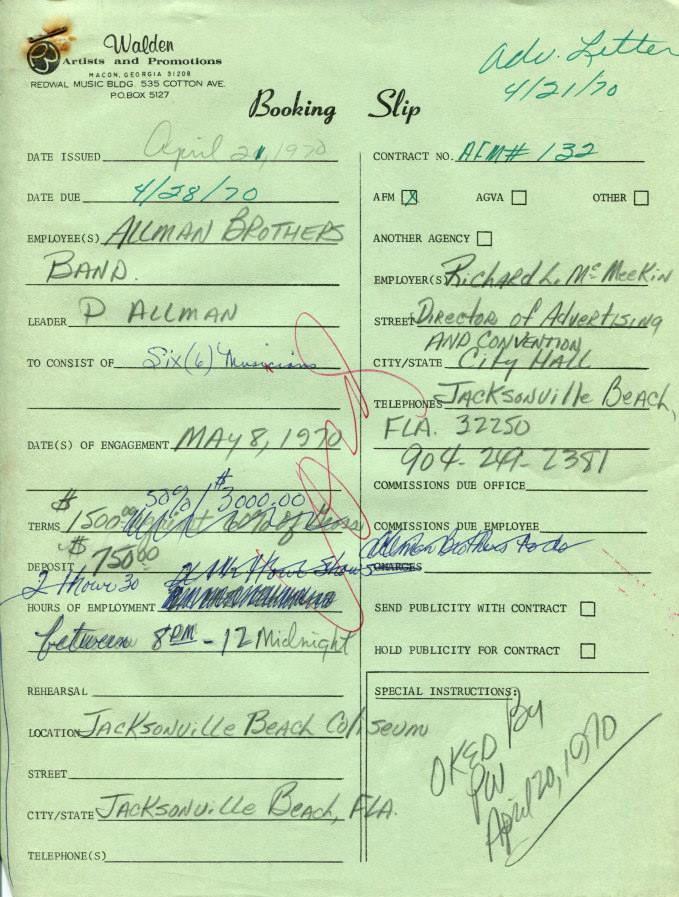 Walden
Artists and Promotions
MACON, GEORGIA 31208
REDWAL MUSIC BLDG. 535 COTTON AVE.
P.O.BOX 5127
Adv. Letter
4/21/70
Booking Slip
DATE ISSUED April 21, 1970
DATE DUE 4/28/70
EMPLOYEE(S) ALLMAN BROTHERS
BAND.
LEADER D ALLMAN
TO CONSIST OF Six (6) Musicians
DATE(S) OF ENGAGEMENT MAY 8, 1970
50% / $3000.00
TERMS $1500.00 60% of Gross
DEPOSIT $750.00
2 1 hour 30
HOURS OF EMPLOYMENT
between 8PM - 12 Midnight
REHEARSAL
LOCATION Jacksonville Beach Coliseum
STREET
CITY/STATE Jacksonville Beach, FLA.
TELEPHONE(S)
CONTRACT NO. AFM# 132
AFM X AGVA OTHER
ANOTHER AGENCY
EMPLOYER(S) Richard L. McMeekin
STREET Director of Advertising
AND CONVENTION
CITY/STATE City Hall
TELEPHONES Jacksonville Beach,
FLA. 32250
904-249-2381
COMMISSIONS DUE OFFICE
COMMISSIONS DUE EMPLOYEE
Allman Brothers to do
CHARGES
SEND PUBLICITY WITH CONTRACT
HOLD PUBLICITY FOR CONTRACT
SPECIAL INSTRUCTIONS:
OKED By
PW
April 20, 1970